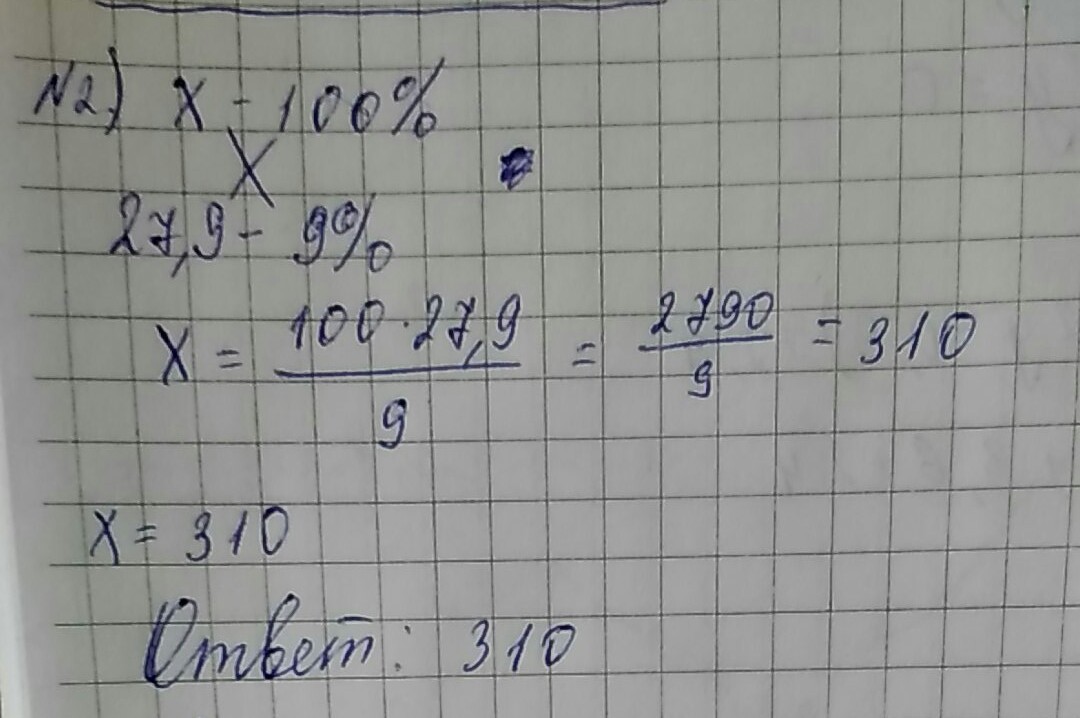 N2) x - 100%
27,9 - 9%
x = 100 · 27,9 / 9 = 2790 / 9 = 310
x = 310
Ответ: 310